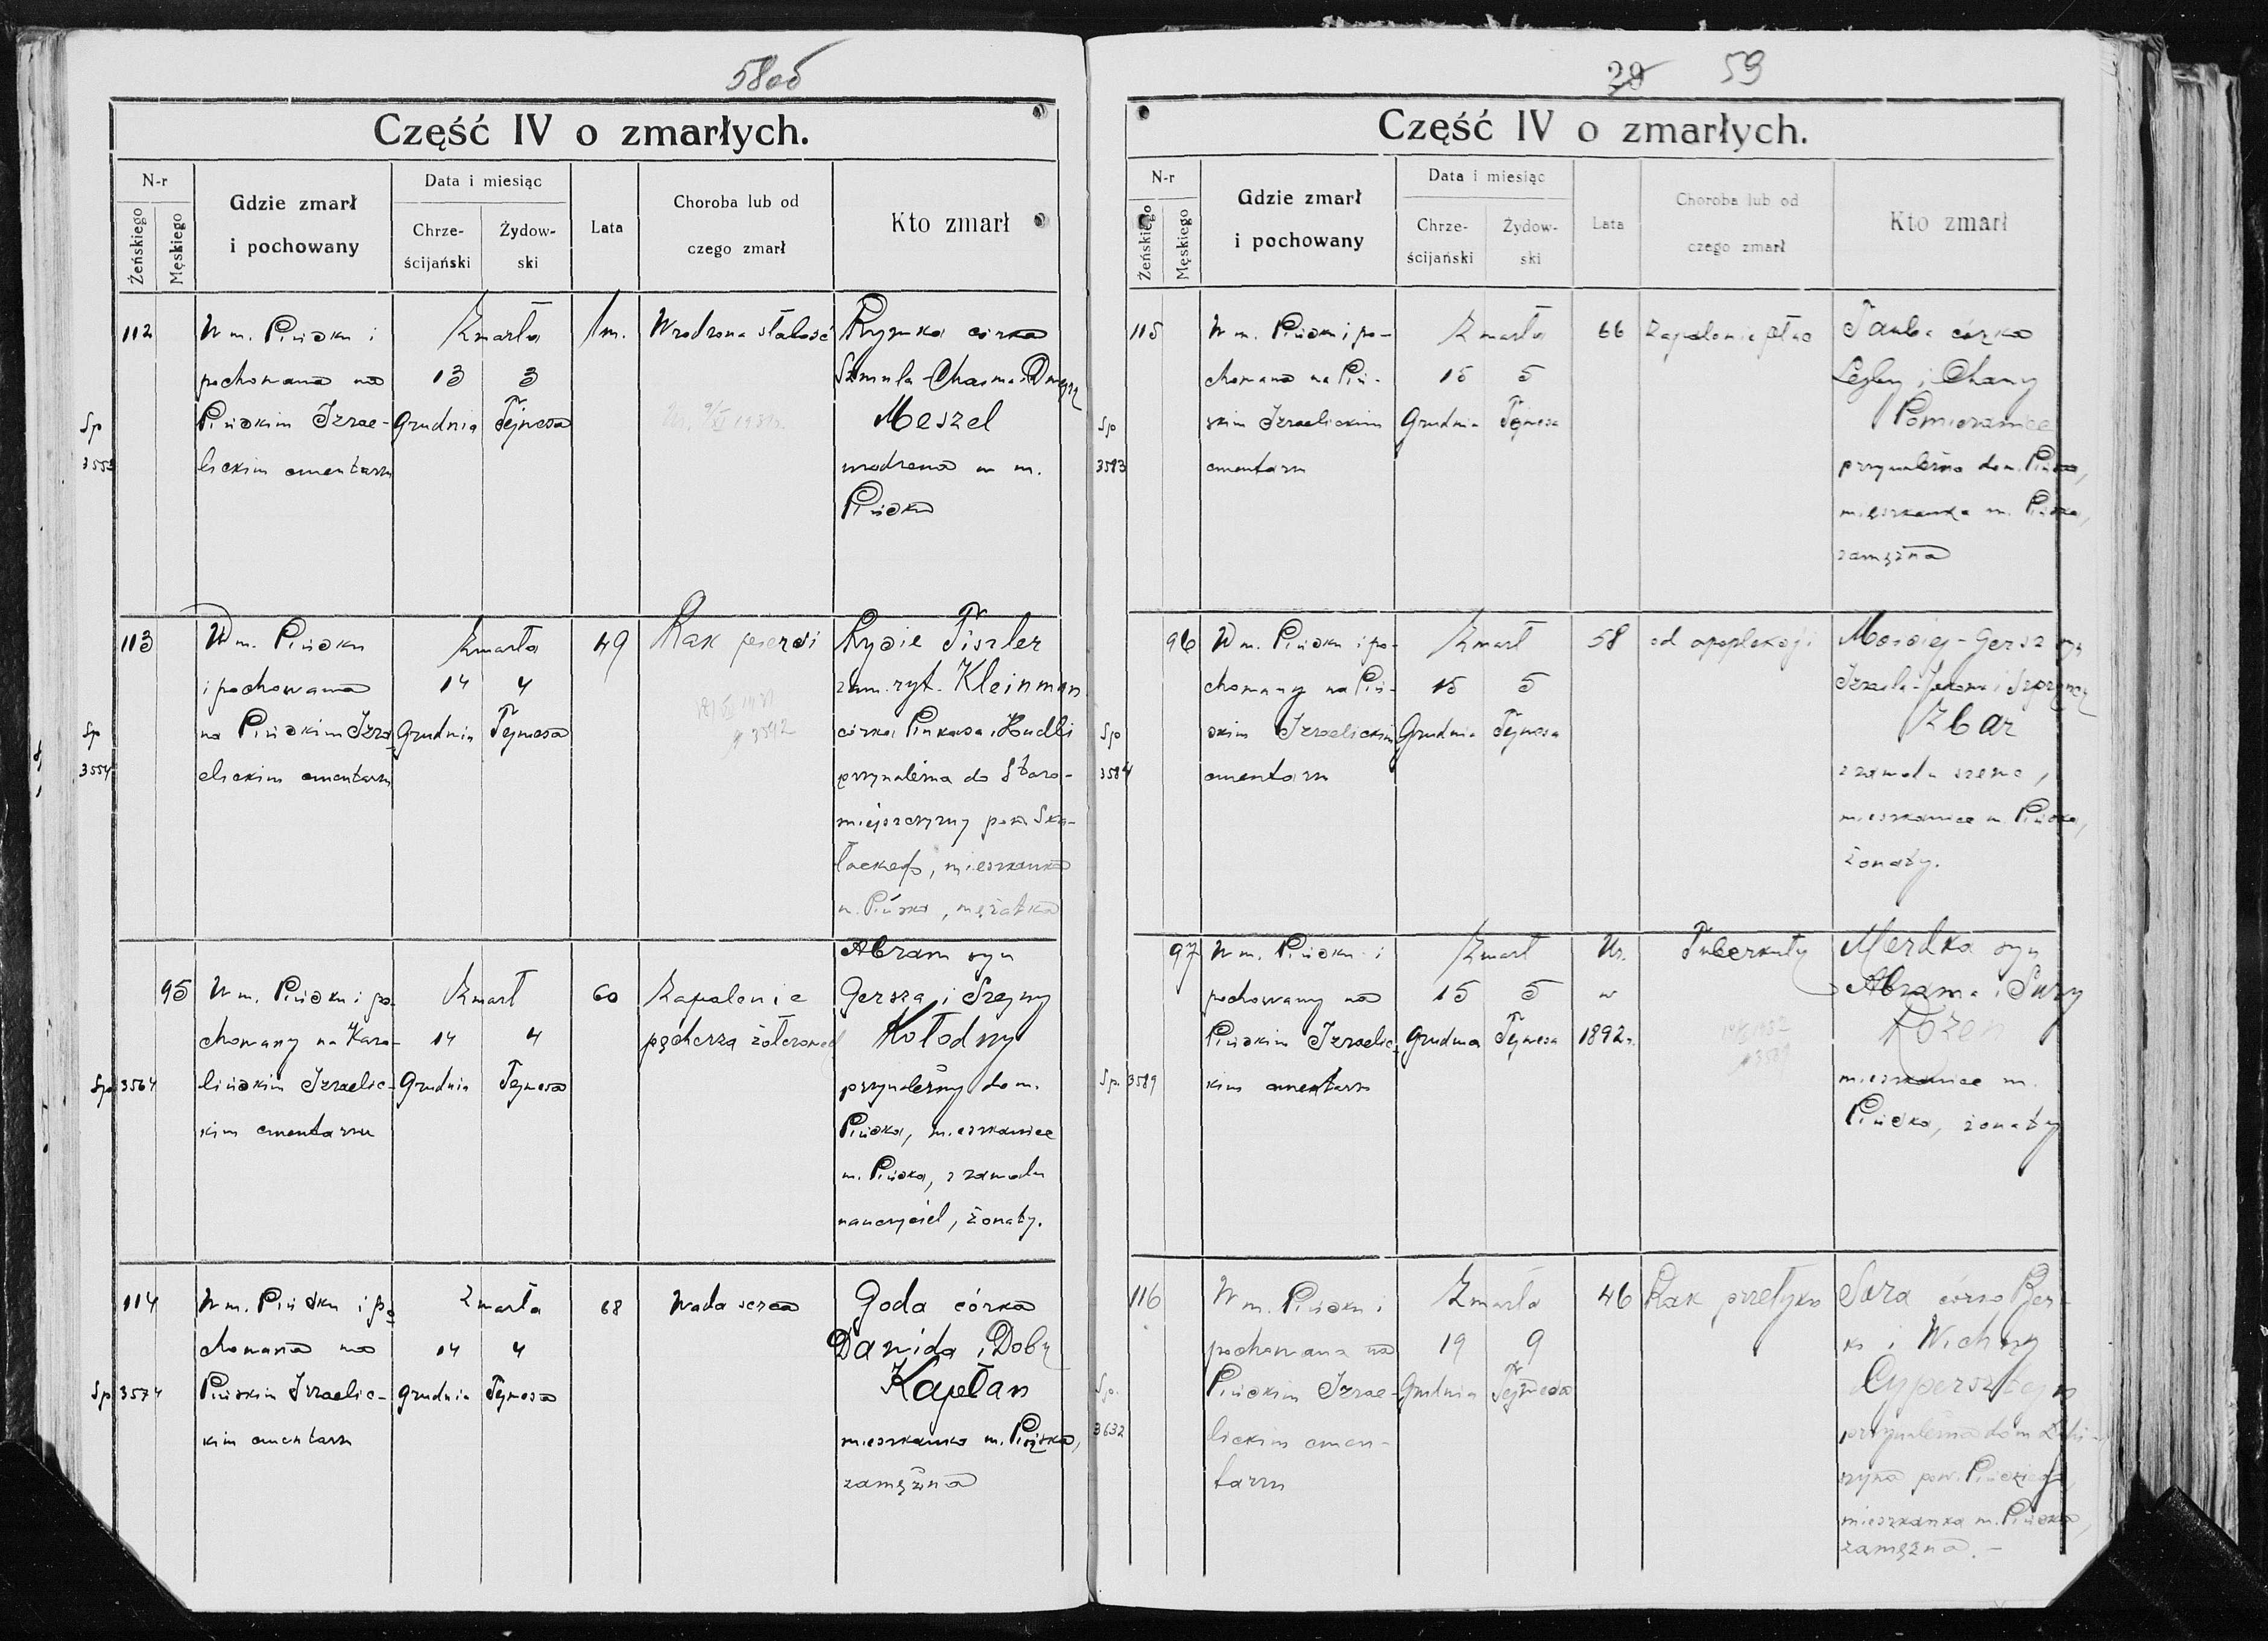 58об
Część IV o zmarłych.
N-r
Żeńskiego
Męskiego
Gdzie zmarł
i pochowany
Data i miesiąc
Chrze-
ścijański
Żydow-
ski
Lata
Choroba lub od
czego zmarł
Kto zmarł
112
W m. Pińsku i
pochowana na
Pińskim Izrae-
lickim cmentarzu
Sp
Zmarła
13 3
Grudnia Tejwesa
1 m.
Wrodzona słabość
Rywka córka
Szmula-Chaima i
Meszel
urodzona w m.
Pińsku
113
W m. Pińsku
i pochowana
na Pińskim Izra
elickim cmentarzu
Sp
3554
Zmarła
14 4
Grudnia Tejwesa
49
Rak piersi
Rysie Fiszler
zam. ryt. Kleinman
córka Pinkasa i Hudli
przynależna do Staro-
miejszczyzny pow. Ska-
łackiego, mieszkanka
m. Pińska, mężatka
95
W m. Pińsku i po-
chowany na Karo-
lińskim Izraelic-
kim cmentarzu
Sp 3564
Zmarł
14 4
Grudnia Tejwesa
60
Zapalenie
pęcherza żółciowe
Abram syn
Gersza i Szejny
Kołodny
przynależny do m.
Pińska, mieszkaniec
m. Pińska, z zawodu
nauczyciel, żonaty.
114
W m. Pińsku i po
chowana na
Pińskim Izraelic-
kim cmentarzu
Sp 3574
Zmarła
14 4
Grudnia Tejwesa
68
Wada serca
Goda córka
Dawida i Doby
Kapłan
mieszkanka m. Pińska,
zamężna
29 59
Część IV o zmarłych.
N-r
Żeńskiego
Męskiego
Gdzie zmarł
i pochowany
Data i miesiąc
Chrze-
ścijański
Żydow-
ski
Lata
Choroba lub od
czego zmarł
Kto zmarł
115
W m. Pińsku i po-
chowana na Piń-
skim Izraelickim
cmentarzu
Sp
3583
Zmarła
15 5
Grudnia Tejwesa
66
Zapalenie płuc
Tauba córka
Lejby i Chany
Pomieraniec
przynależna do m. Pińska,
mieszkanka m. Pińska,
zamężna
96
W m. Pińsku i po-
chowany na Piń-
skim Izraelickim
cmentarzu
Sp
3584
Zmarł
15 5
Grudnia Tejwesa
58
od apopleksji
Mowsiej-Gersz syn
Izraela- i Szpryncy
Zbar
z zawodu szewc,
mieszkaniec m. Pińska,
żonaty.
97
W m. Pińsku i
pochowany na
Pińskim Izraelic-
kim cmentarzu
Sp. 3589
Zmarł
15 5
Grudnia Tejwesa
Ur.
w
1892 r.
Tuberkuły
Merdka syn
Abrama i Sury
Rozen
mieszkaniec m.
Pińska, żonaty
116
W m. Pińsku i
pochowana na
Pińskim Izrae-
lickim cmen-
tarzu
Sp.
3632
Zmarła
19 9
Grudnia Tejwesa
46
Rak przełyku
Sara córka Ber-
ka i Wichny
Cypersztejn
przynależna do m Lohi-
szyna pow. Pińskiego,
mieszkanka m. Pińska,
zamężna.-